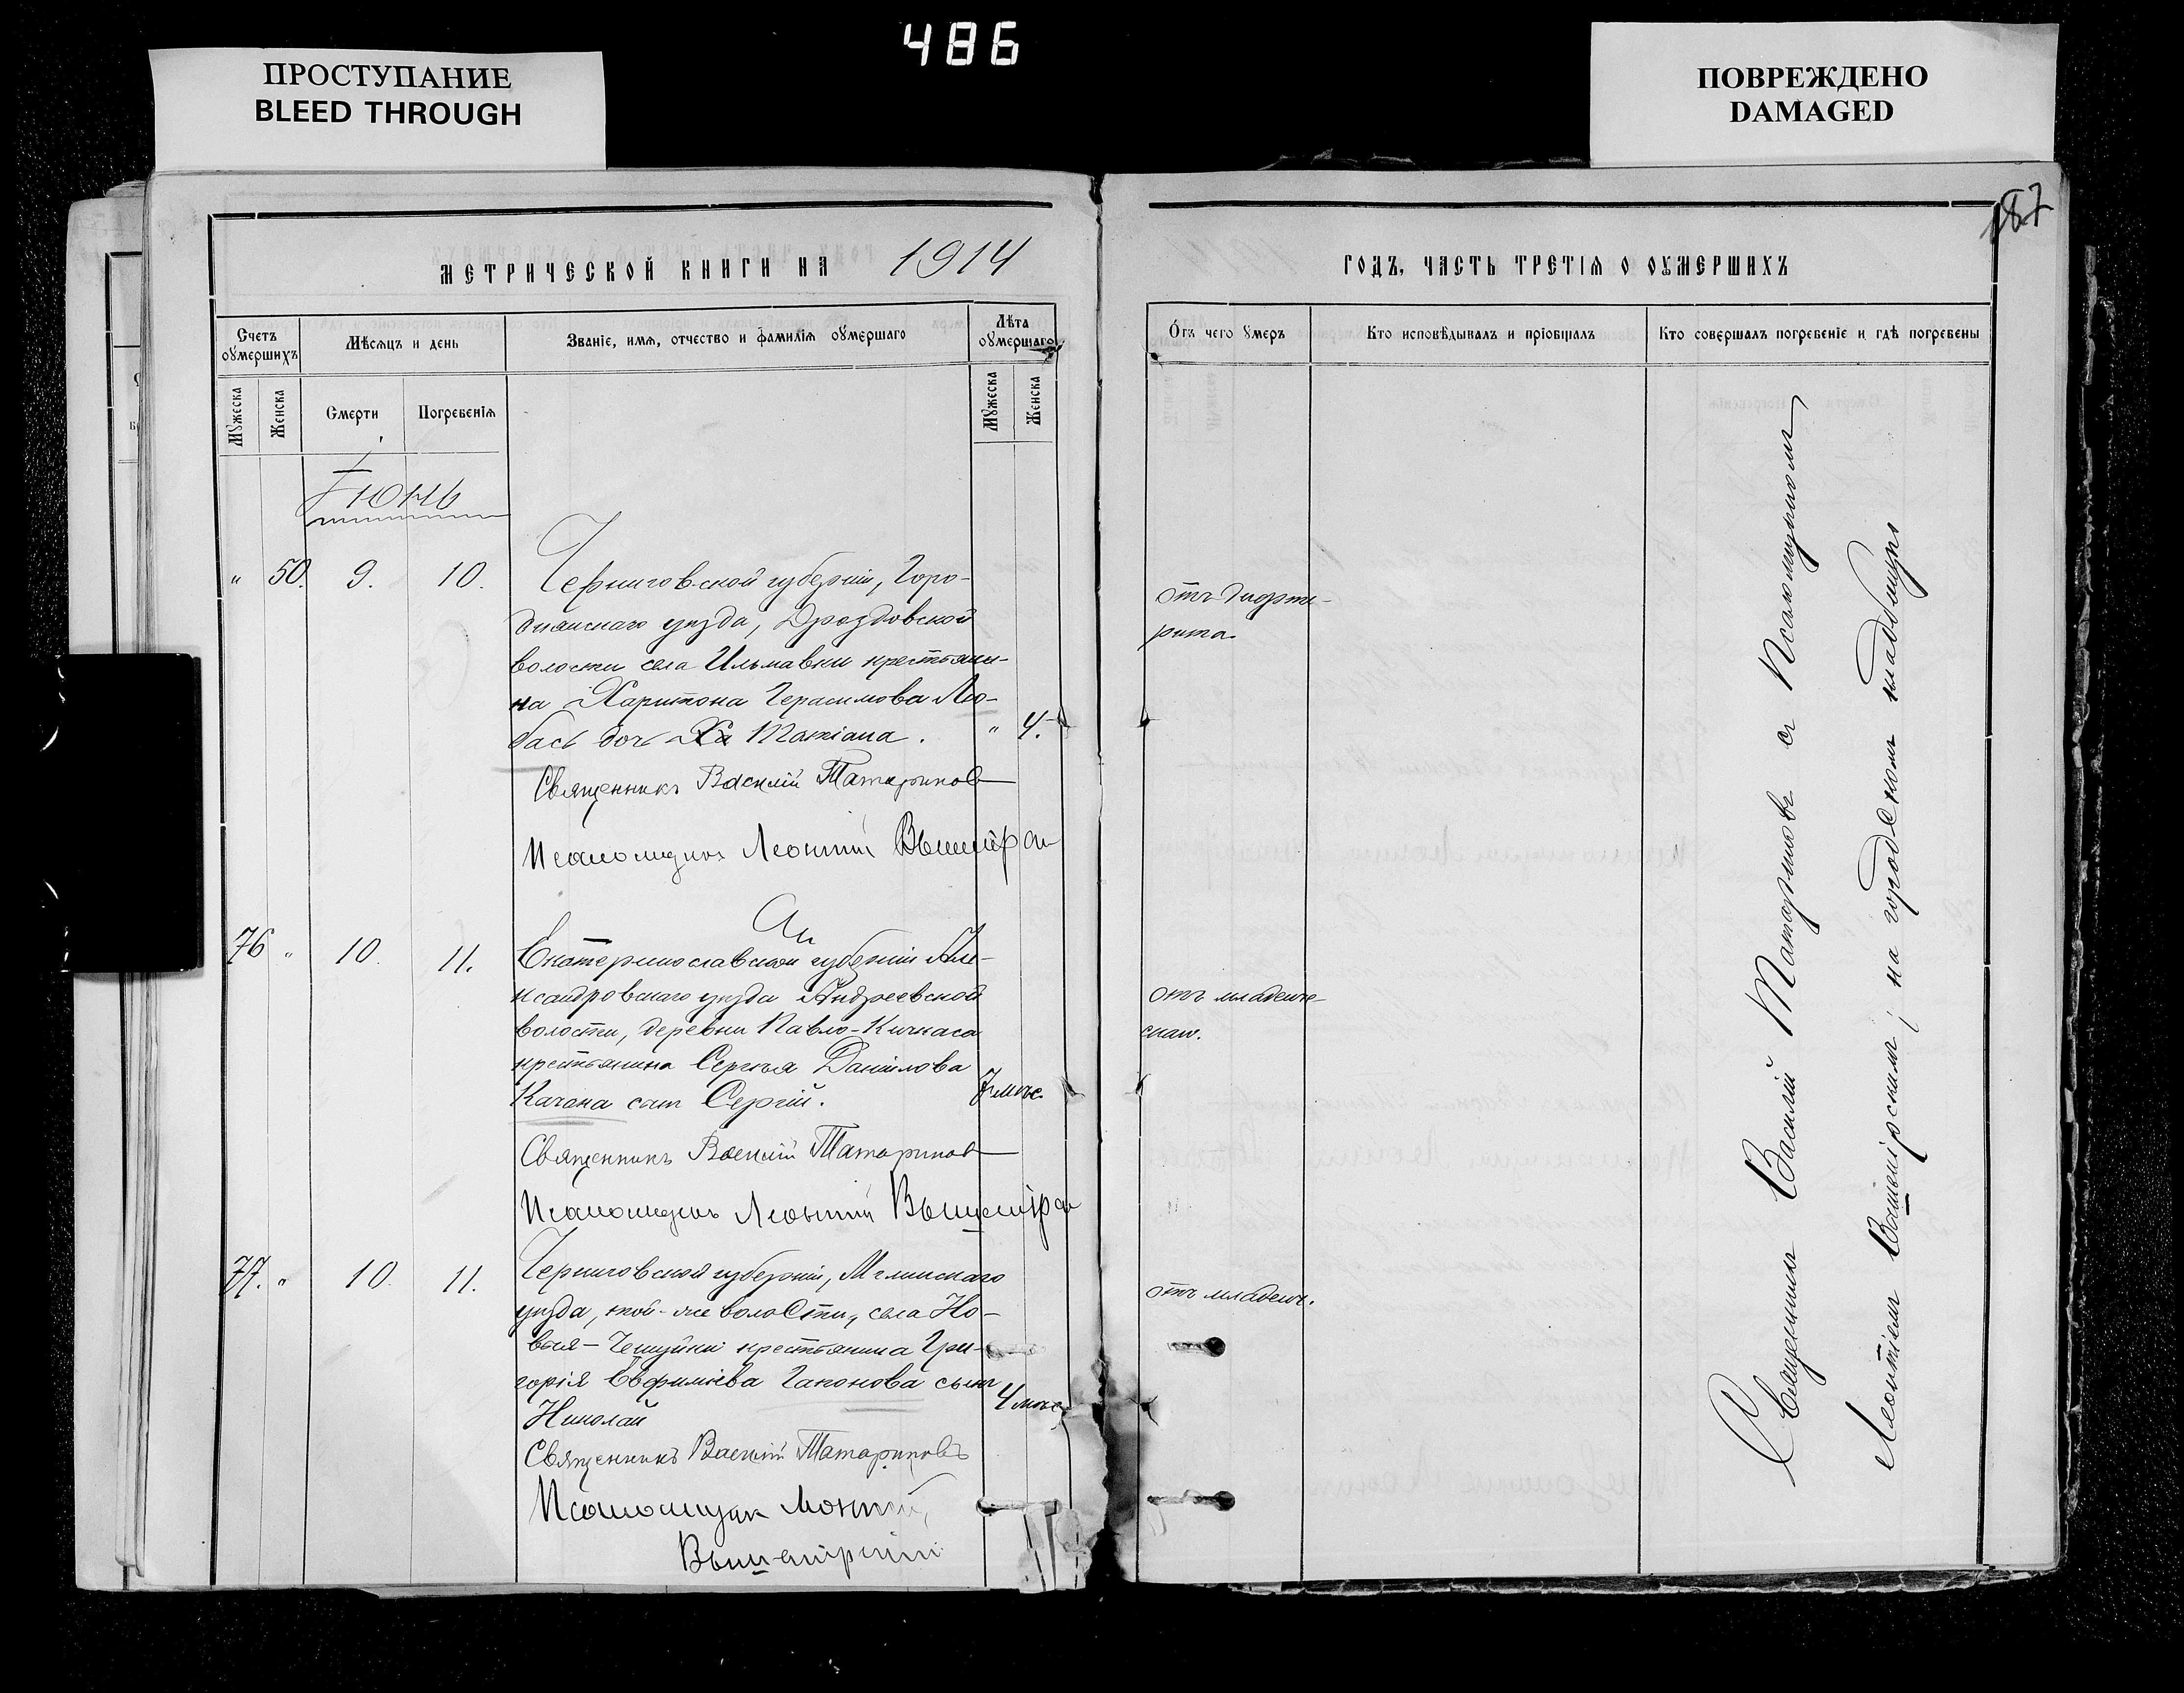 486
ПРОСТУПАНИЕ
BLEED THROUGH
ПОВРЕЖДЕНО
DAMAGED
187
МЕТРИЧЕСКОЙ КНИГИ НА 1914
Счетъ оумершихъ
Мѣсяцъ и день
Званіе, имя, отчество и фамилія оумершаго
Лѣта оумершаго
Мужеска
Женска
Смерти
Погребенія
Мужеска
Женска
Іюнь
" 50. 9. 10.
Черниговской губерніи, Горо-
днянскаго уѣзда, Дроздовской
волости села Ильмавки крестьяни-
на Харитона Герасимова Ло-
бась дочь Татіана. " 4.
Священникъ Василій Татариновъ
Псаломщикъ Леонтій
76 " 10. 11.
Екатеринославской губерніи Але-
ксандровскаго уѣзда Андреевской
волости, деревни Павло-Кичкаса
крестьянина Сергѣя Даніилова
Качана сынъ Сергій. 7 мѣс.
Священникъ Василій Татариновъ
Псаломщикъ Леонтій
77. " 10. 11.
Черниговской губерніи, Мглинскаго
уѣзда, той-же волости, села Но-
выя-Чешуйки крестьянина Гри-
горія Евфиміева Гапонова сынъ
Николай 4 мѣс.
Священникъ Василій Татариновъ
Псаломщик Леонтій
ГОДЪ, ЧАСТЬ ТРЕТІЯ О ОУМЕРШИХЪ
Отъ чего умеръ
Кто исповѣдывалъ и пріобщалъ
Кто совершалъ погребеніе и гдѣ погребены
отъ дифте-
рита.
отъ младенче-
ской.
отъ младенч.
Священникъ Василій Татариновъ съ Псаломщикомъ
Леонтіемъ Вышемірскимъ; на городскомъ кладбищѣ